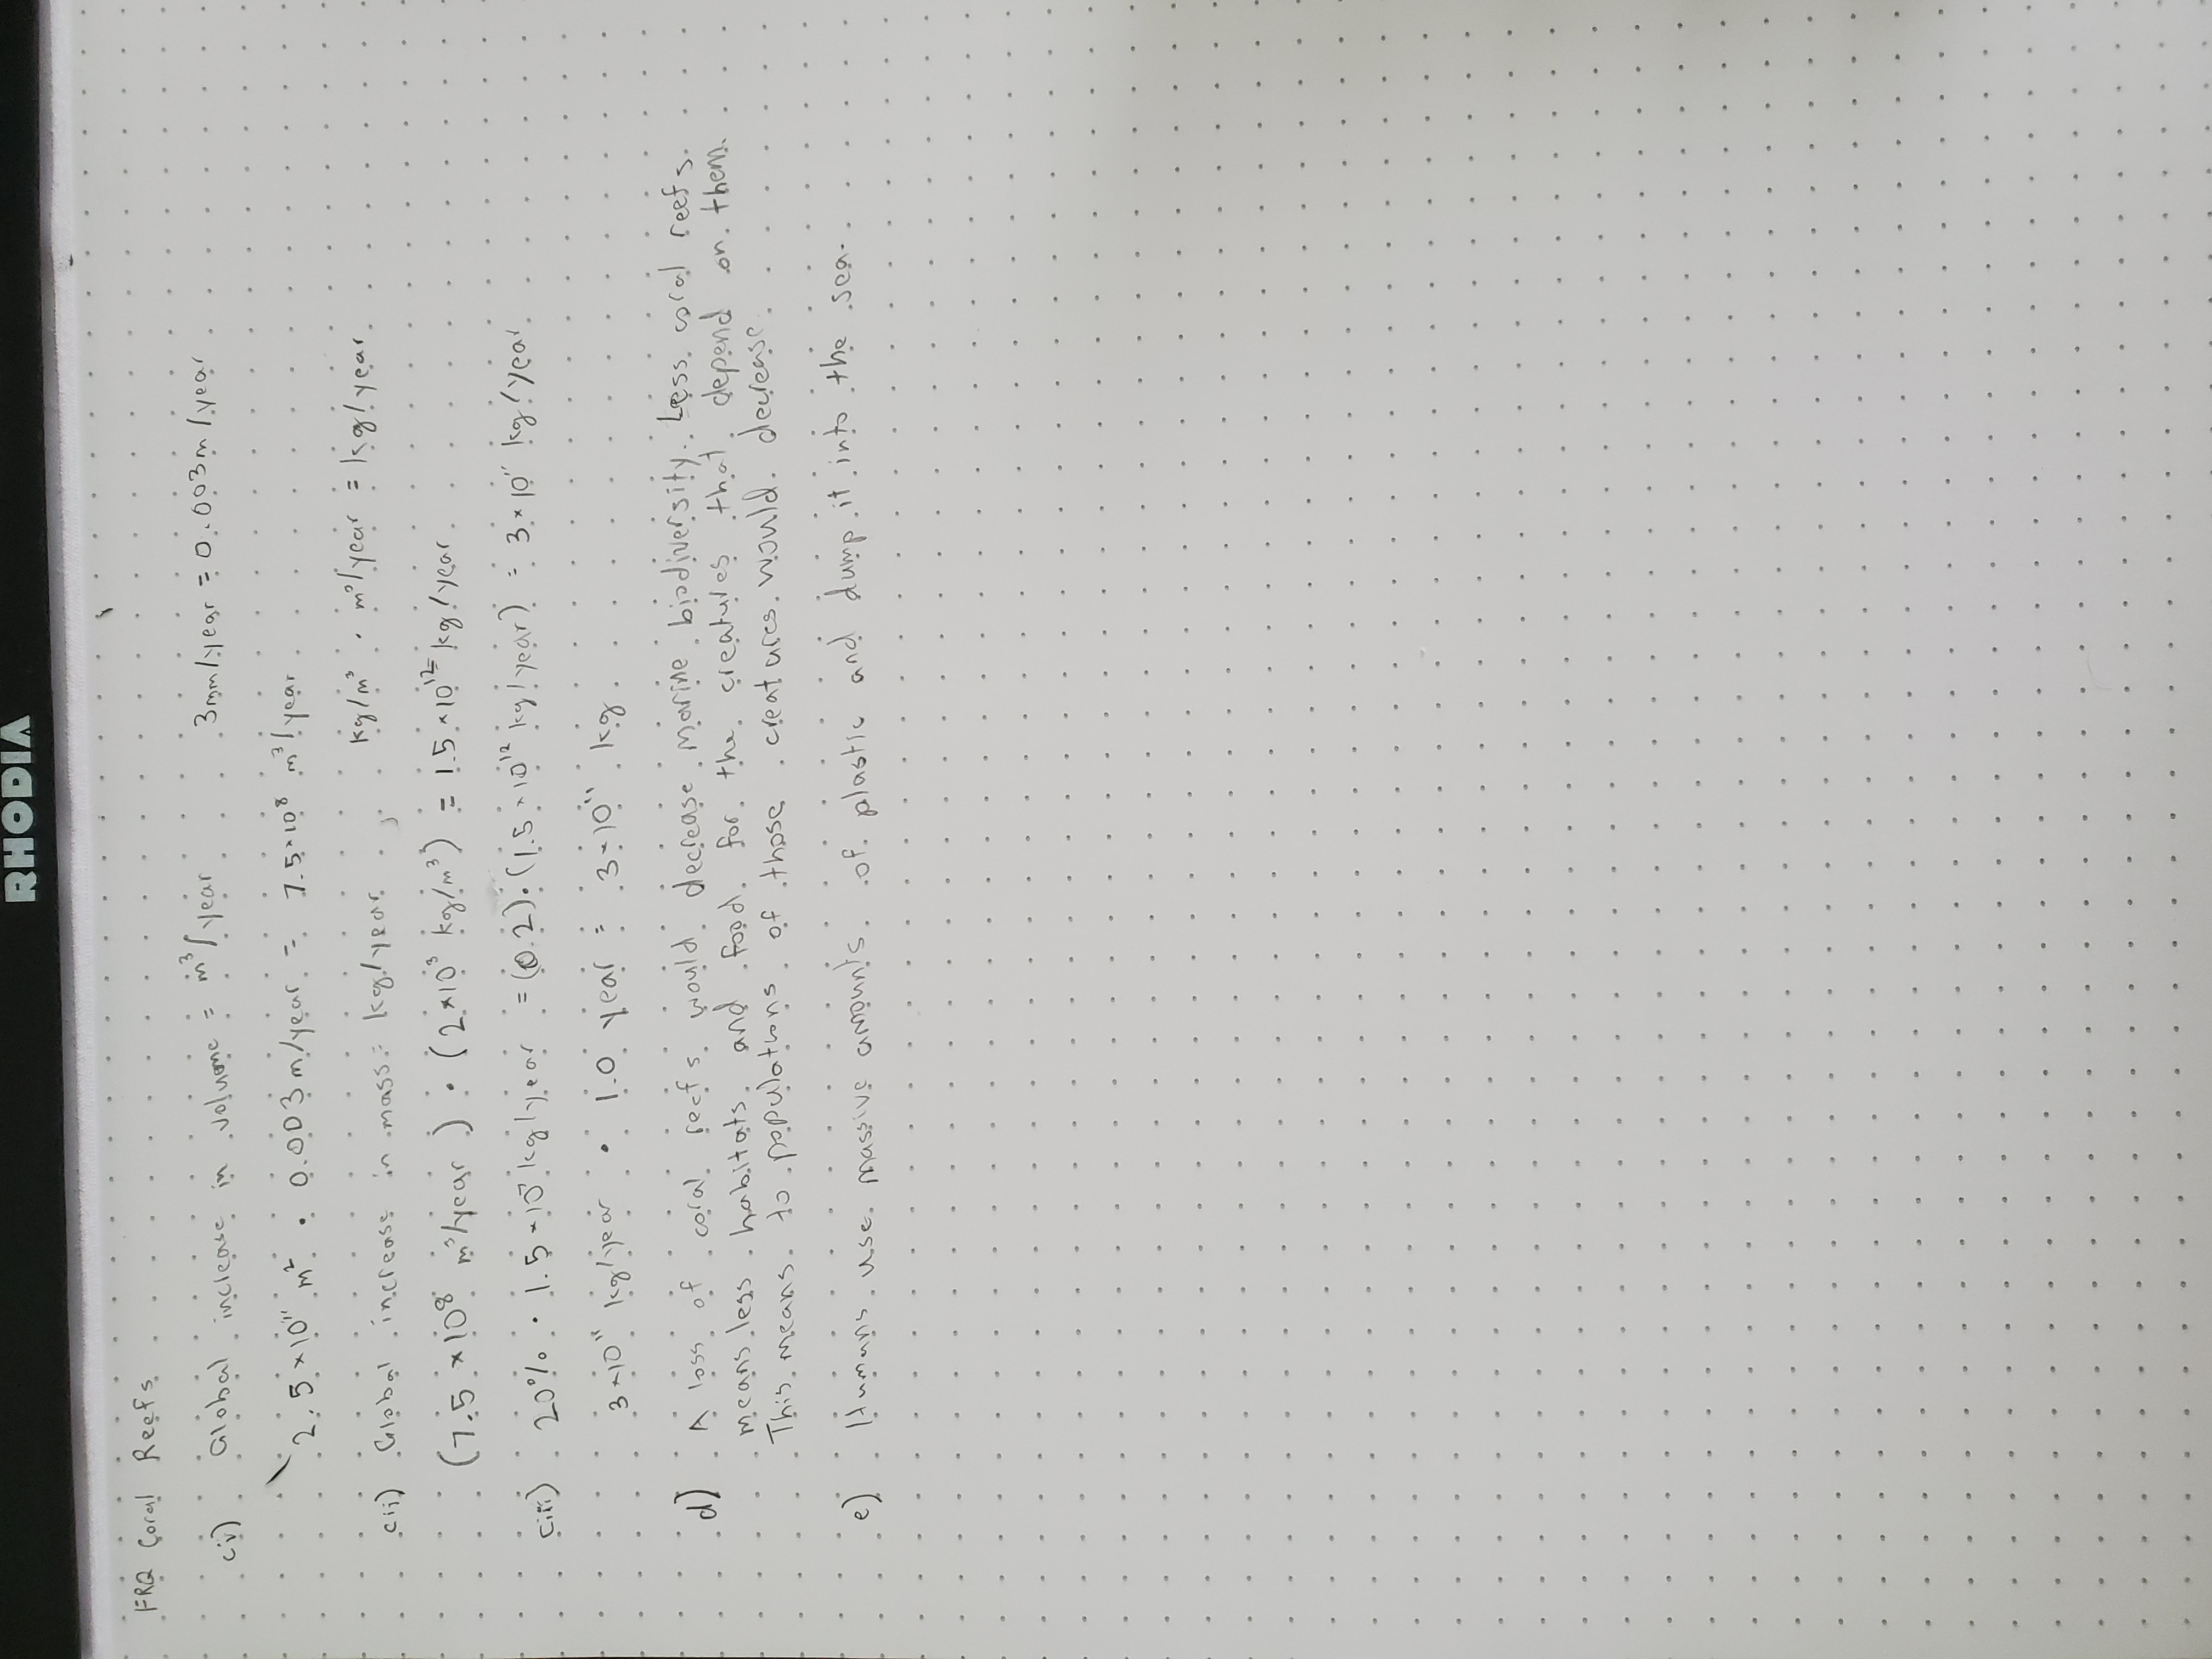 RHODIA
FRQ Coral Reefs
ci) Global increase in volume = m³/year 3mm/year = 0.003m/year
2.5×10¹¹ m² · 0.003m/year = 7.5×10⁸ m³/year
cii) Global increase in mass = kg/year , kg/m³ · m³/year = kg/year
(7.5×10⁸ m³/year) · (2×10³ kg/m³) = 1.5×10¹² kg/year
ciii) 20% · 1.5×10 kg/year = (0.2)·(1.5×10¹² kg/year) = 3×10¹¹ kg/year
3×10¹¹ kg/year · 1.0 year = 3×10¹¹ kg
d) A loss of coral reefs would decrease marine biodiversity. Less coral reefs
means less habitats and food for the creatures that depend on them.
This means to populations of those creatures would decrease
e) Humans use massive amounts of plastic and dump it into the sea.